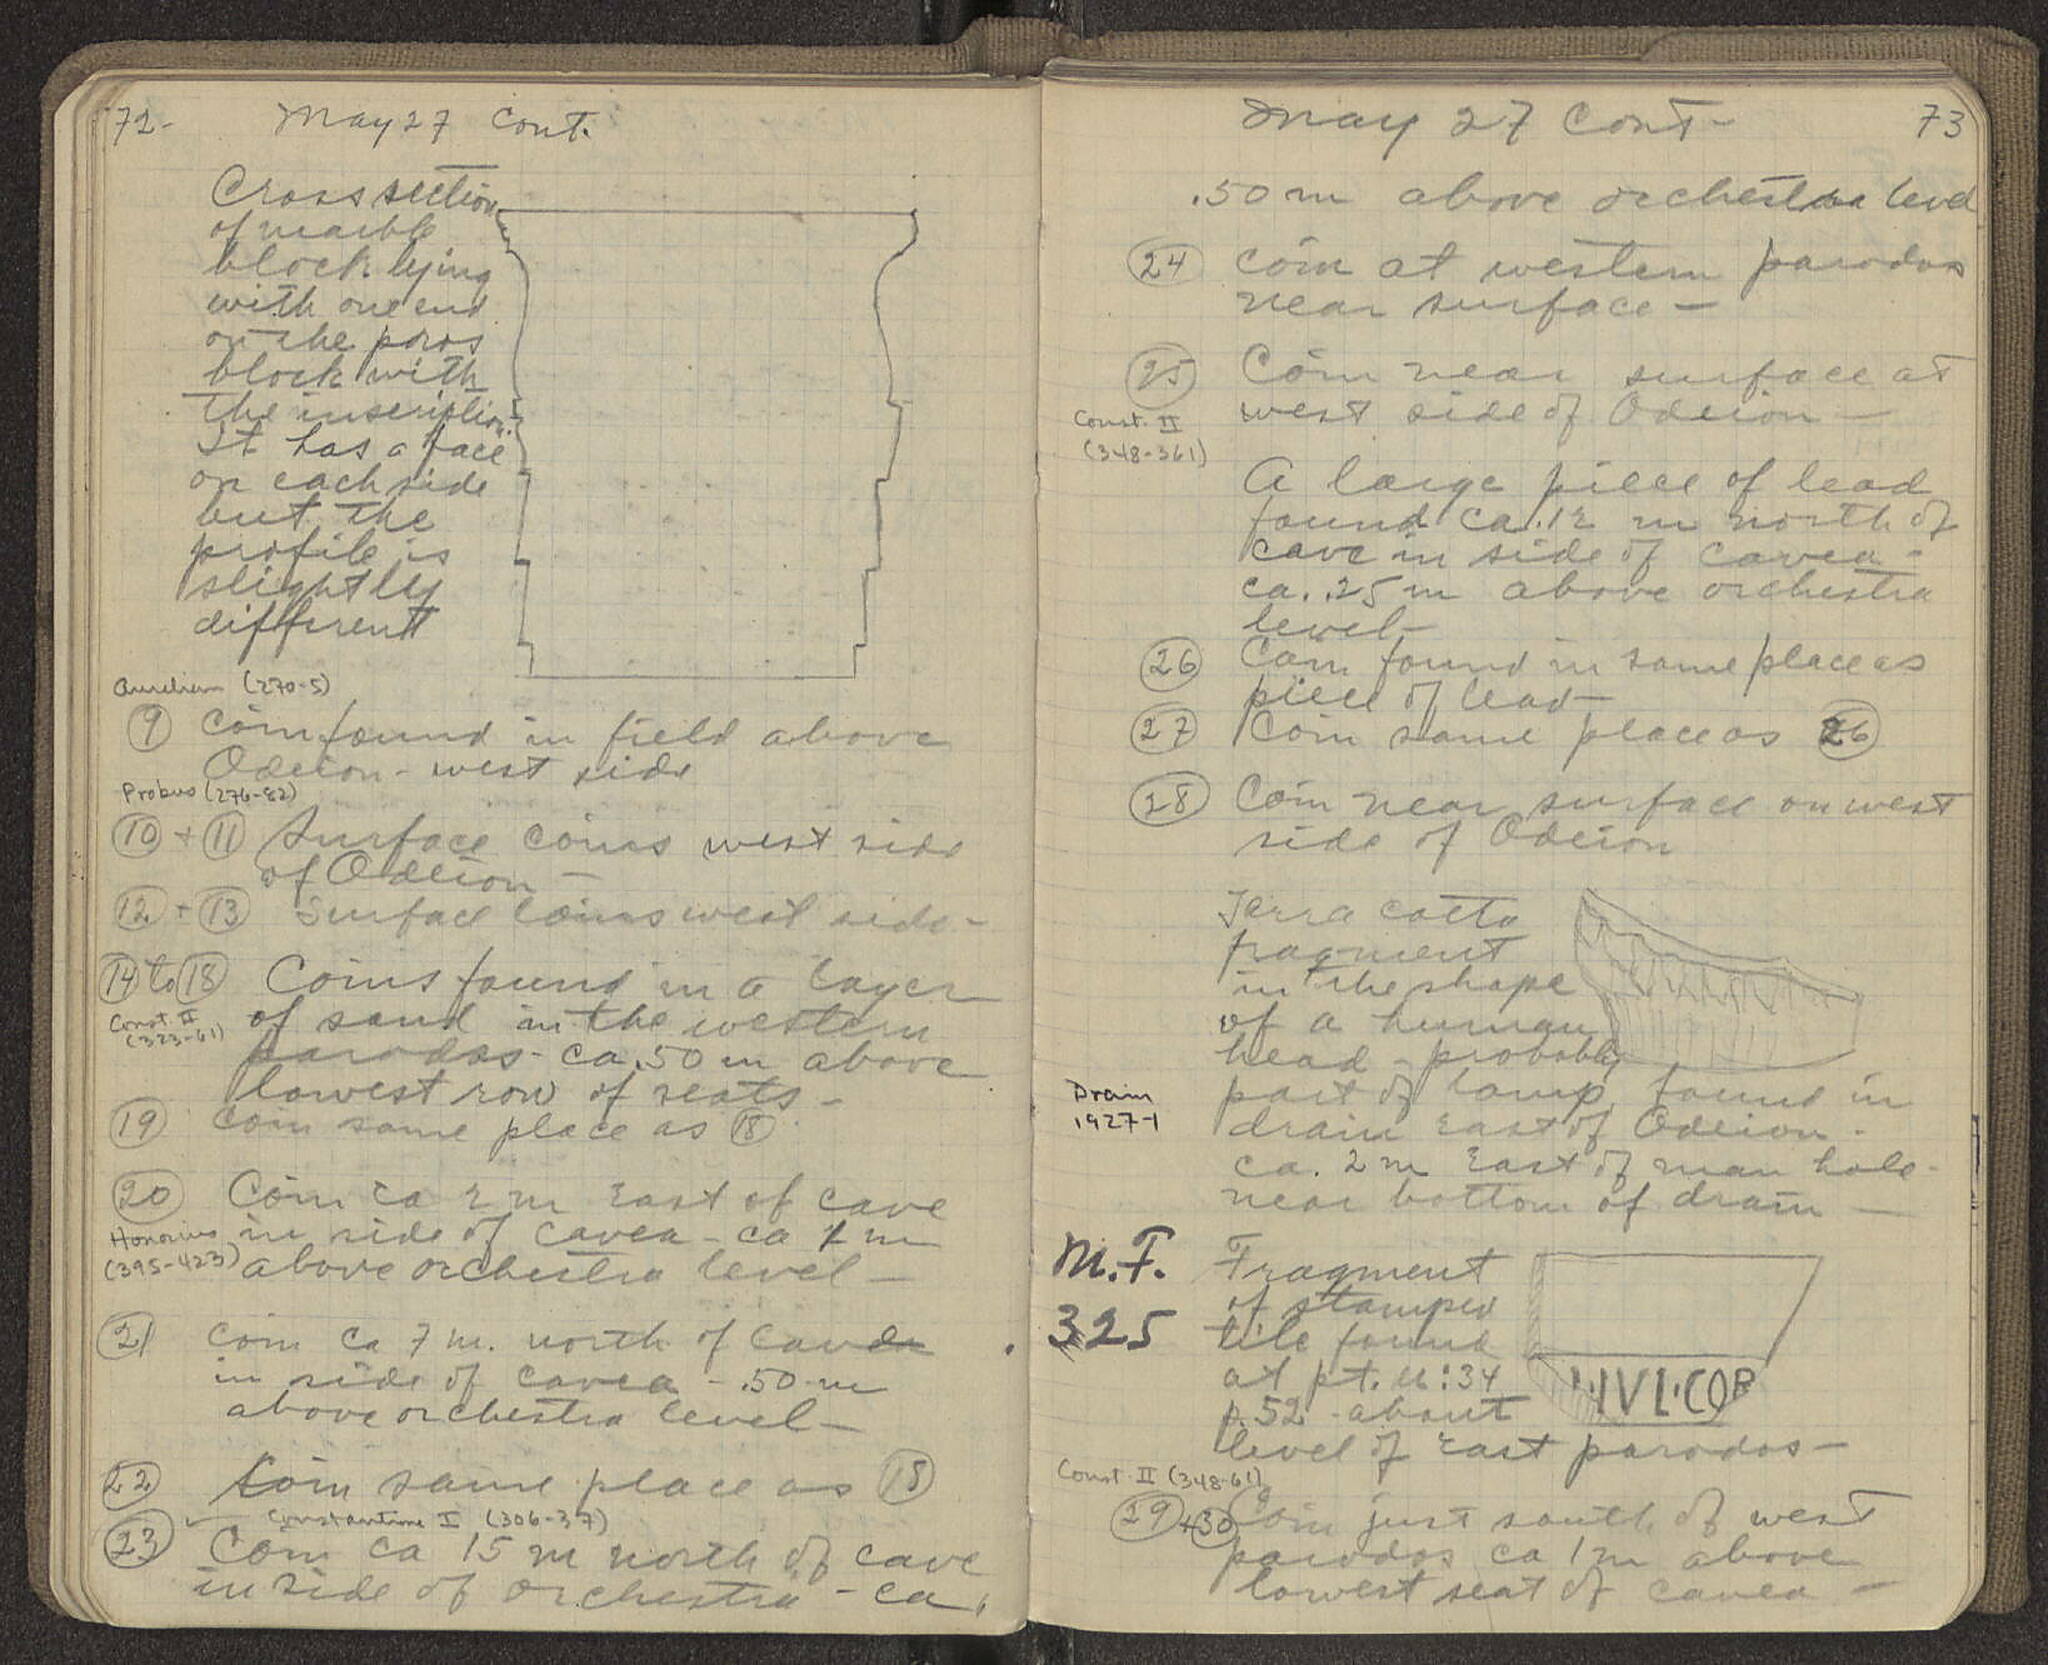 72-
May 27 Cont.
Cross section
of marble
block lying
with one end
on the poros
block with
the inscription.
It has a face
on each side
but the
profile is
slightly
different
Aurelian (270-5)
9 Coin found in field above
Odeion - west side
Probus (276-82)
10 + 11 Surface coins west side
of Odeion -
12 + 13 Surface Coins west side -
14 to 18 Coins found in a layer
Const. II
(323-61)
of sand in the western
parodos - ca .50 m above
lowest row of seats -
19 Coin same place as 18
20 Coin ca 2 m east of cave
Honorius
(395-423)
in side of cavea - ca 1 m
above orchestra level -
21 Coin ca 7 m. north of cave
in side of cavea - .50 m
above orchestra level -
22 Coin same place as 18
Constantine I (306-37)
23 Coin ca 15 m north of cave
in side of orchestra - ca.
May 27 Cont -
73
.50 m above orchestra level
24 Coin at western parodos
near surface -
25 Coin near surface at
west side of Odeion -
Const. II
(348-361)
A large piece of lead
found ca. 12 m north of
cave in side of cavea -
ca. .25 m above orchestra
level -
26 Coin found in same place as
piece of lead -
27 Coin same place as 26
28 Coin near surface on west
side of Odeion
Terra cotta
fragment
in the shape
of a human
head - probably
part of lamp, found in
Drain
1927-1
drain East of Odeion -
ca. 2 m East of man hole -
near bottom of drain -
M.F.
325
Fragment
of stamped
tile found
at pt. u:34
p. 52 - about
level of East parodos -
IVL·COR
Const. II (348-61)
29 + 30 Coin just south of west
parodos ca 1 m above
lowest seat of cavea -